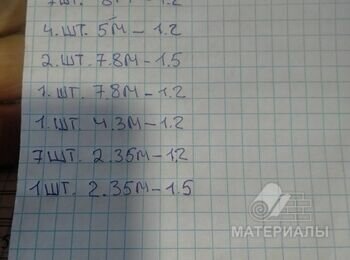 7шт. 6м-1.2
4.шт. 5м-1.2
2.шт. 7.8м-1.5
1.шт. 7.8м-1.2
1.шт. 4.3м-1.2
7шт. 2.35м-1.2
1шт. 2.35м-1.5
МАТЕРИАЛЫ